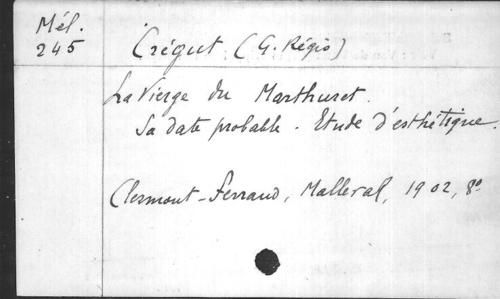 Mél.
245
Crégut (G. Régis)
La Vierge du Marthuret.
Sa date probable. Etude d'esthétique.
Clermont-Ferrand, Malleval, 1902, 8º